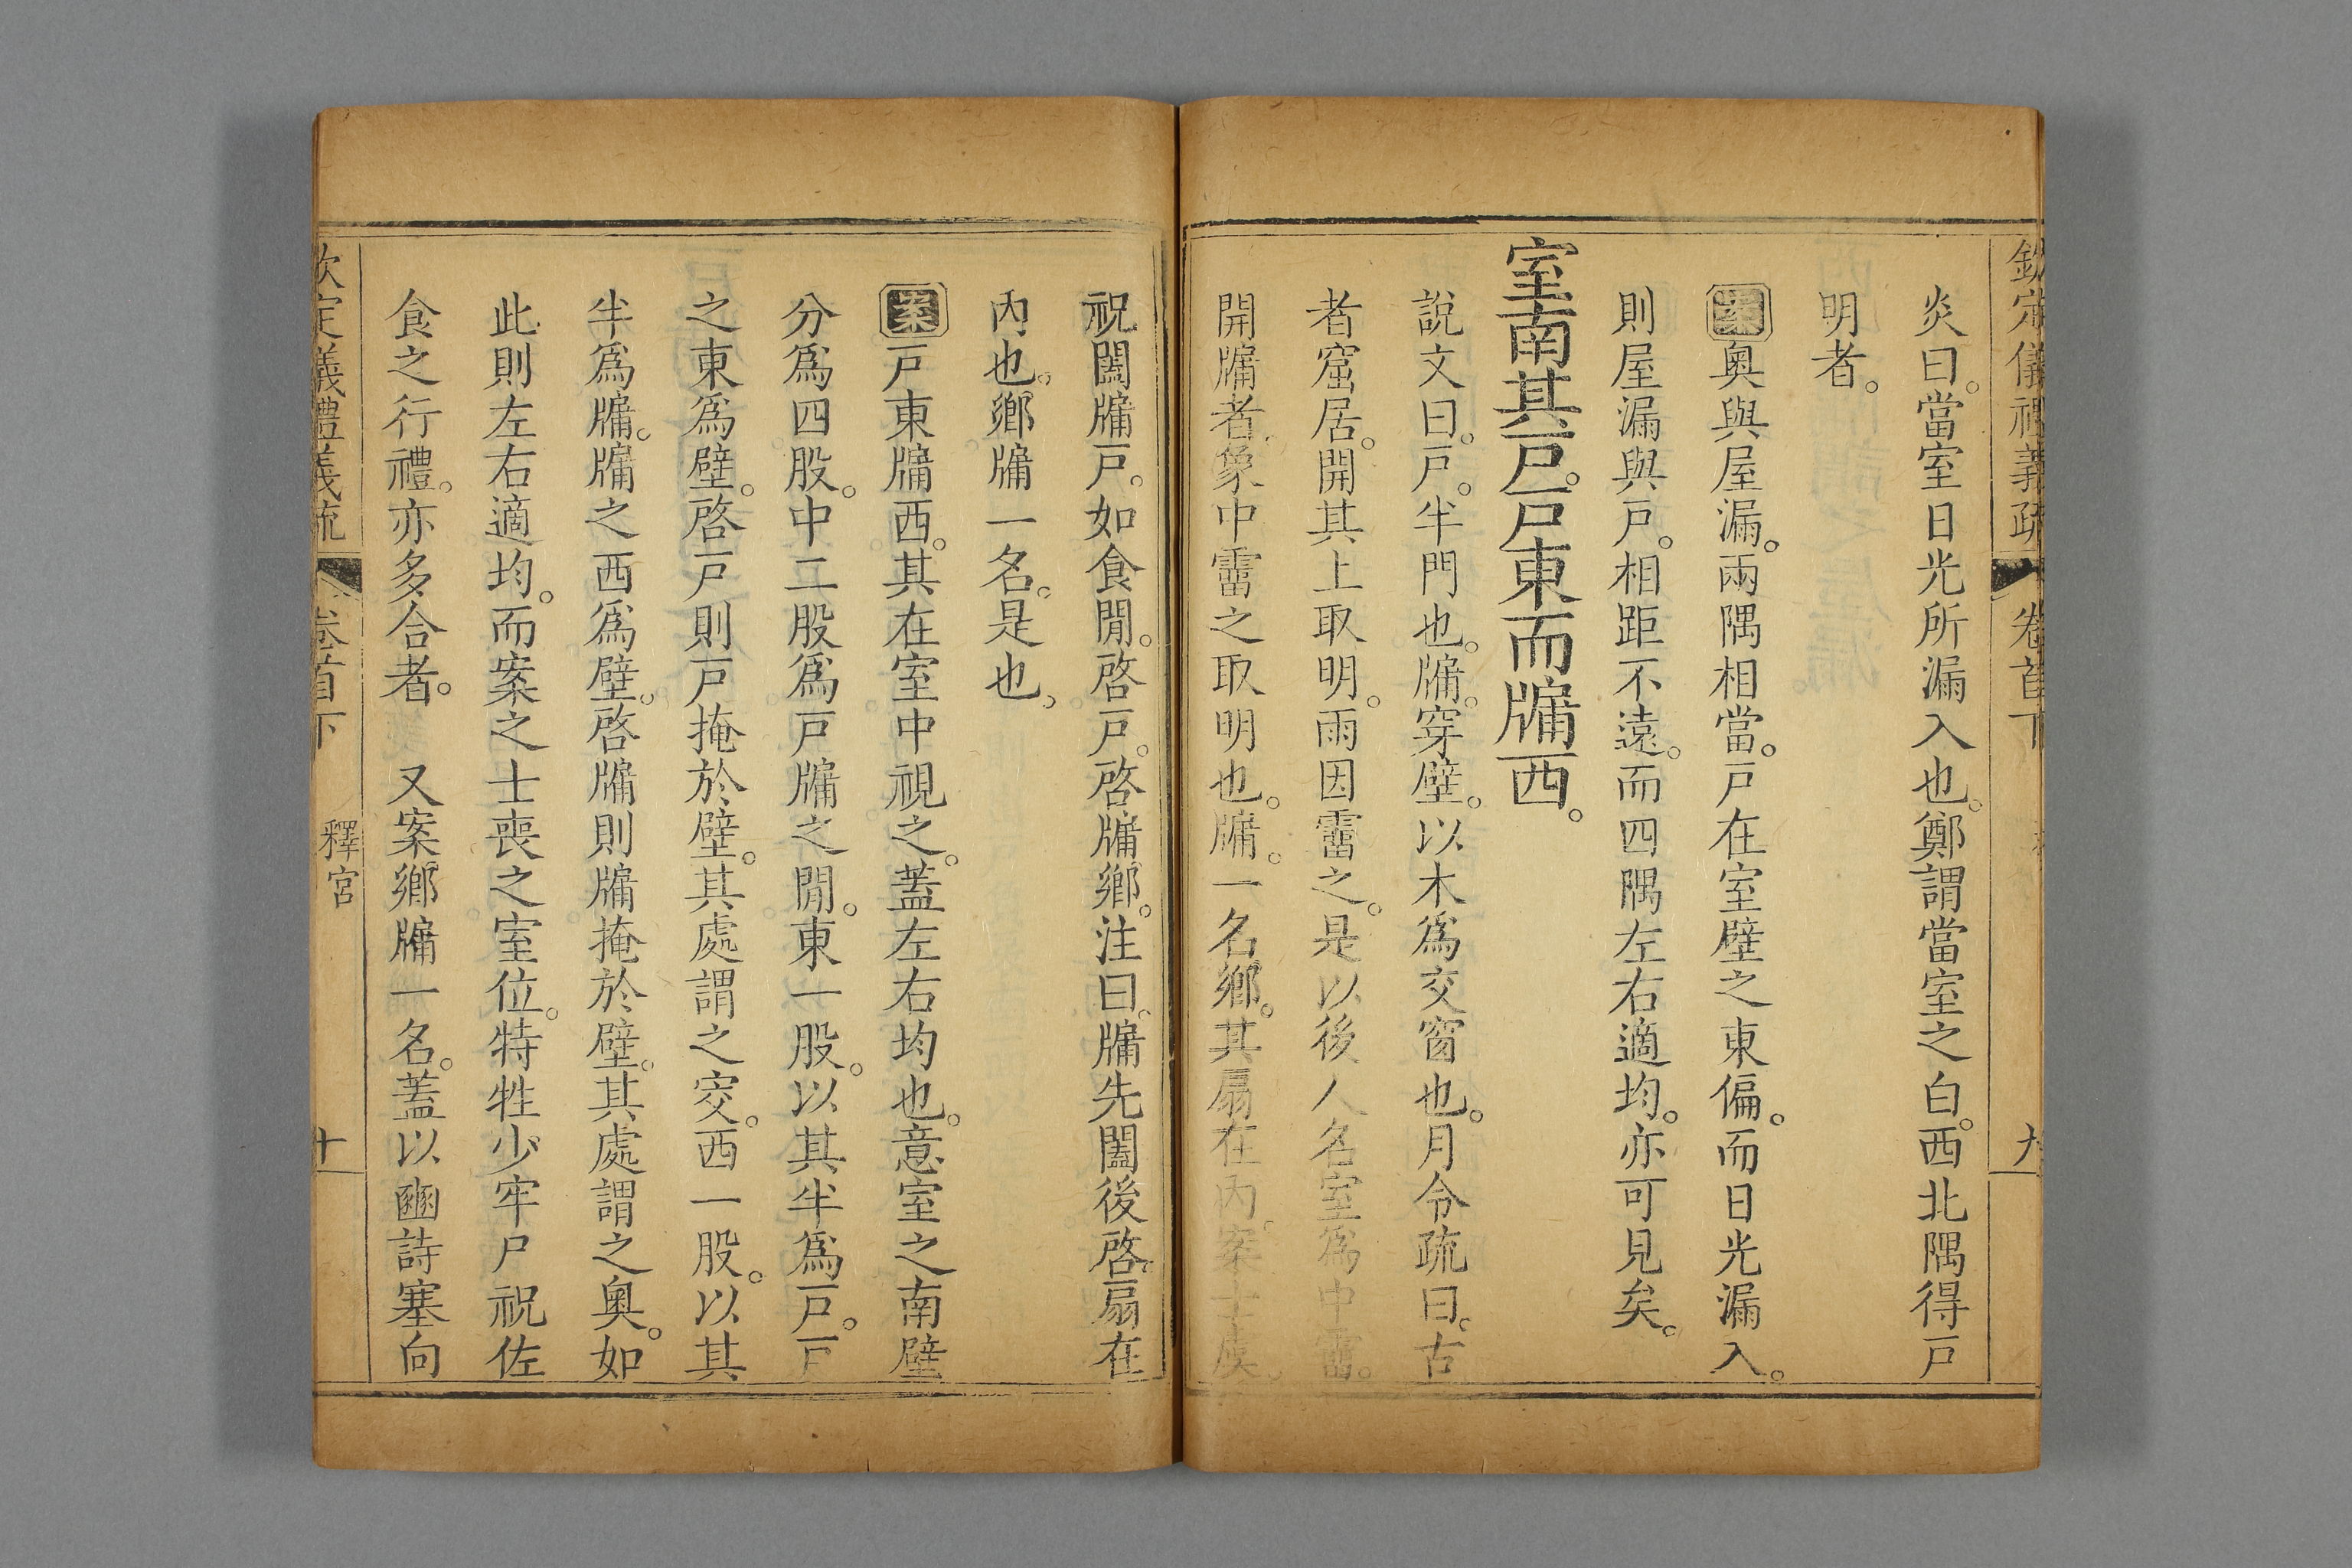 欽定儀禮義疏 卷首下 九
炎曰。當室日光所漏入也。鄭謂當室之白。西北隅得戶
明者。
案奧與屋漏。兩隅相當。戶在室壁之東偏。而日光漏入。
則屋漏與戶。相距不遠。而四隅左右適均。亦可見矣。
室南其戶。戶東而牖西。
說文曰。戶。半門也。牖。穿壁。以木為交窗也。月令疏曰。古
者窟居。開其上取明。雨因霤之。是以後人名室為中霤。
開牖者。象中霤之取明也。牖。一名鄉。其扇在內。案士虞。
祝闔牖戶。如食閒。啓戶。啓牖鄉。注曰。牖先闔後啓。扇在
內也。鄉牖一名。是也。
案戶東牖西。其在室中視之。蓋左右均也。意室之南壁
分爲四股。中二股爲戶牖之閒。東一股。以其半爲戶。戶
之東爲壁。啓戶則戶掩於壁。其處謂之窔。西一股。以其
半爲牖。牖之西爲壁。啓牖則牖掩於壁。其處謂之奧。如
此則左右適均。而案之士喪之室位。特牲少牢尸祝佐
食之行禮。亦多合者。 又案鄉牖一名。蓋以豳詩塞向
欽定儀禮義疏 卷首下 釋宮 十